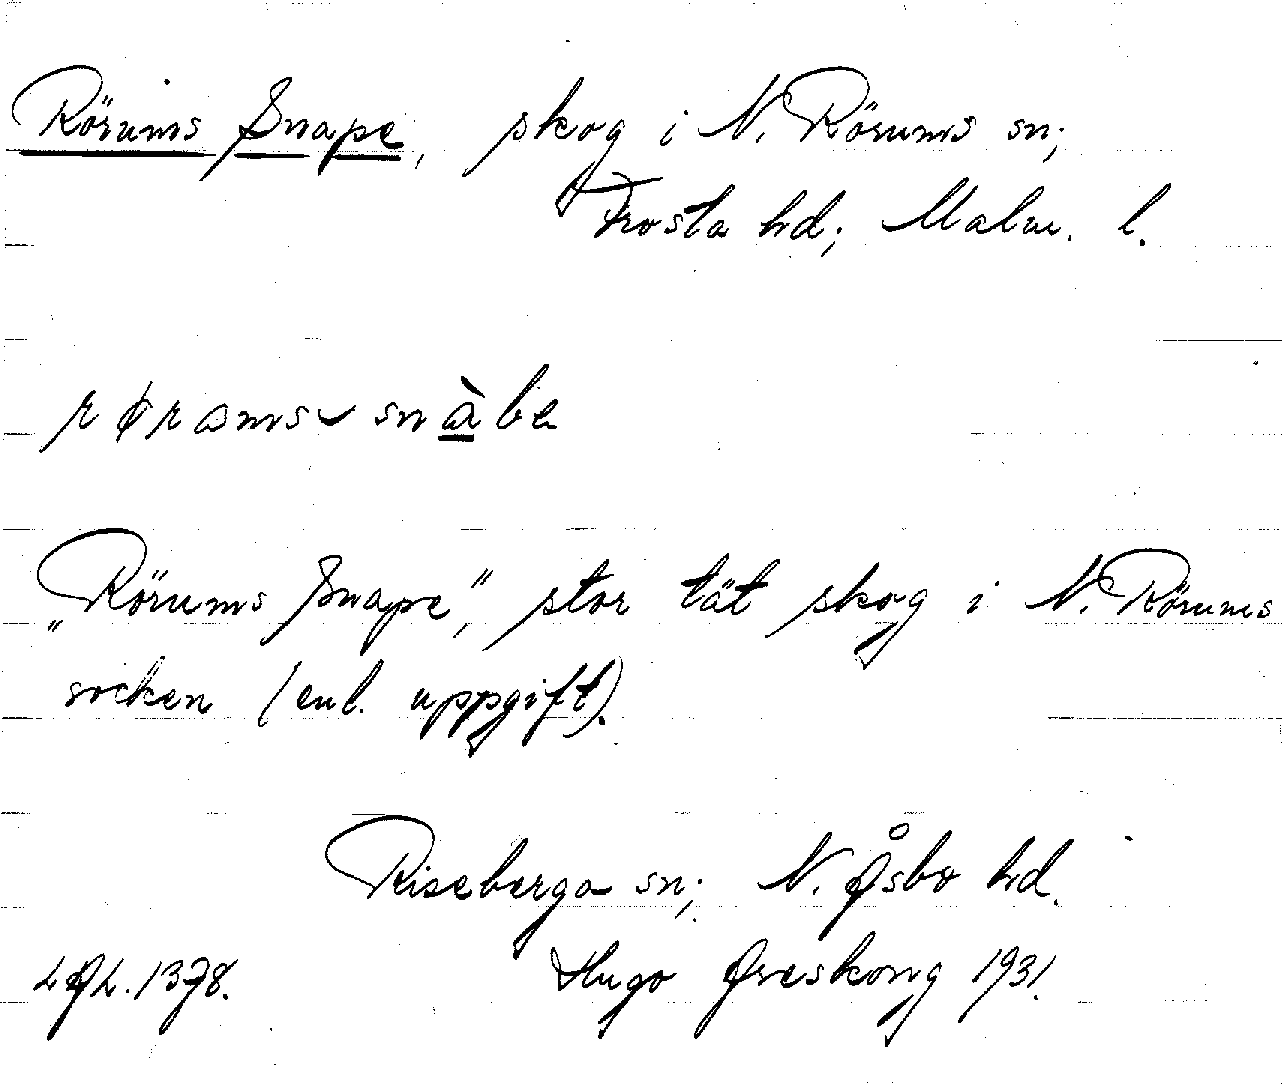 Rörums Snape, skog i N. Rörums sn;
Frosta hd; Malm. l.
rørams- snàbe
„Rörums Snape”, stor tät skog i N. Rörums
socken (enl. uppgift).
Riseberga sn; N. Åsbo hd.
Hugo Areskoug 1931.